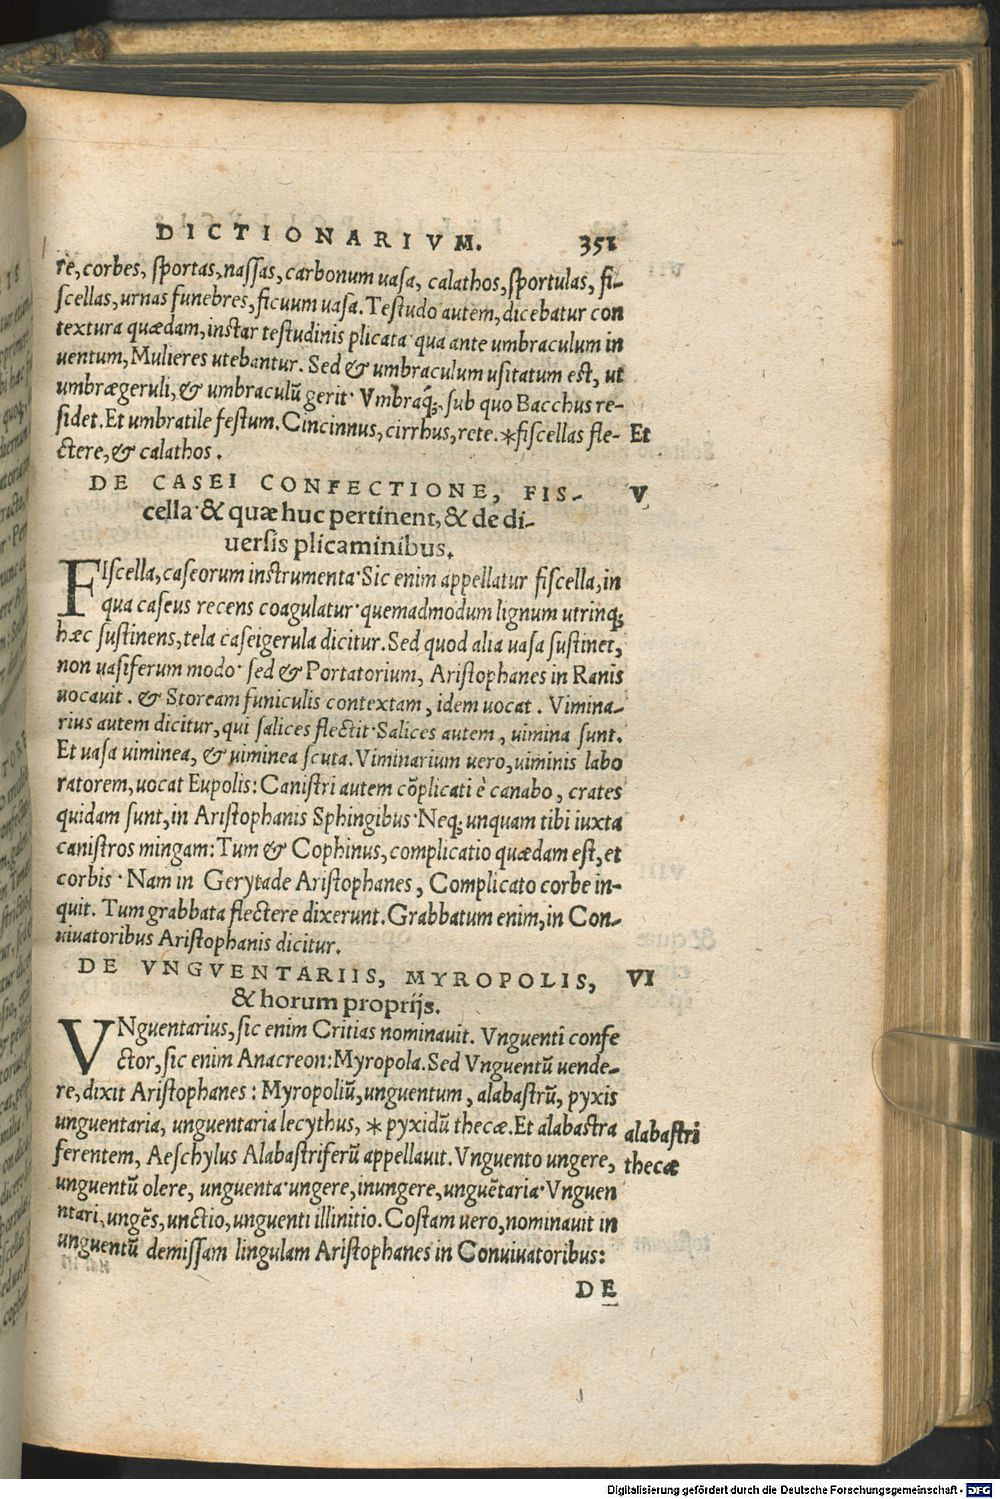 DICTIONARIVM. 351
re, corbes, sportas, nassas, carbonum uasa, calathos, sportulas, fi-
scellas, urnas funebres, ficuum uasa. Testudo autem, dicebatur con
textura quædam, instar testudinis plicata qua ante umbraculum in
uentum, Mulieres utebantur. Sed & umbraculum usitatum est, ut
umbrægeruli, & umbraculū gerit. Vmbraq;, sub quo Bacchus re-
sidet. Et umbratile festum. Cincinnus, cirrhus, rete. *fiscellas fle- Et
ctere, & calathos.
DE CASEI CONFECTIONE, FIS- V
cella & quæ huc pertinent, & de di-
uersis plicaminibus.
FIscella, caseorum instrumenta. Sic enim appellatur fiscella, in
qua caseus recens coagulatur. quemadmodum lignum utrinq;
hæc sustinens, tela caseigerula dicitur. Sed quod alia uasa sustinet,
non uasiferum modo. sed & Portatorium, Aristophanes in Ranis
uocauit. & Storeram funiculis contextam, idem uocat. Vimina-
rius autem dicitur, qui salices flectit. Salices autem, uimina sunt.
Et uasa uiminea, & uiminea scuta. Viminarium uero, uiminis labo
ratorem, uocat Eupolis: Canistri autem cōplicati è canabo, crates
quidam sunt, in Aristophanis Sphingibus. Neq; unquam tibi iuxta
canistros mingam: Tum & Cophinus, complicatio quædam est, et
corbis. Nam in Gerytade Aristophanes, Complicato corbe in-
quit. Tum grabbata flectere dixerunt. Grabbatum enim, in Con-
uiuatoribus Aristophanis dicitur.
DE VNGVENTARIIS, MYROPOLIS, VI
& horum proprijs.
VNguentarius, sic enim Critias nominauit. Vnguenti confe
ctor, sic enim Anacreon: Myropola. Sed Vnguentū uende-
re, dixit Aristophanes: Myropoliū, unguentum, alabastrū, pyxis
unguentaria, unguentaria lecythus, * pyxidū thecæ. Et alabastra alabastri
ferentem, Aeschylus Alabastriferū appellauit. Vnguento ungere, thecæ
unguentū olere, unguenta. ungere, inungere, unguētaria. Vnguen
ntari, ungēs, unctio, unguenti illinitio. Costam uero, nominauit in
unguentū demissam lingulam Aristophanes in Conuiuatoribus:
DE
Digitalisierung gefördert durch die Deutsche Forschungsgemeinschaft - DFG